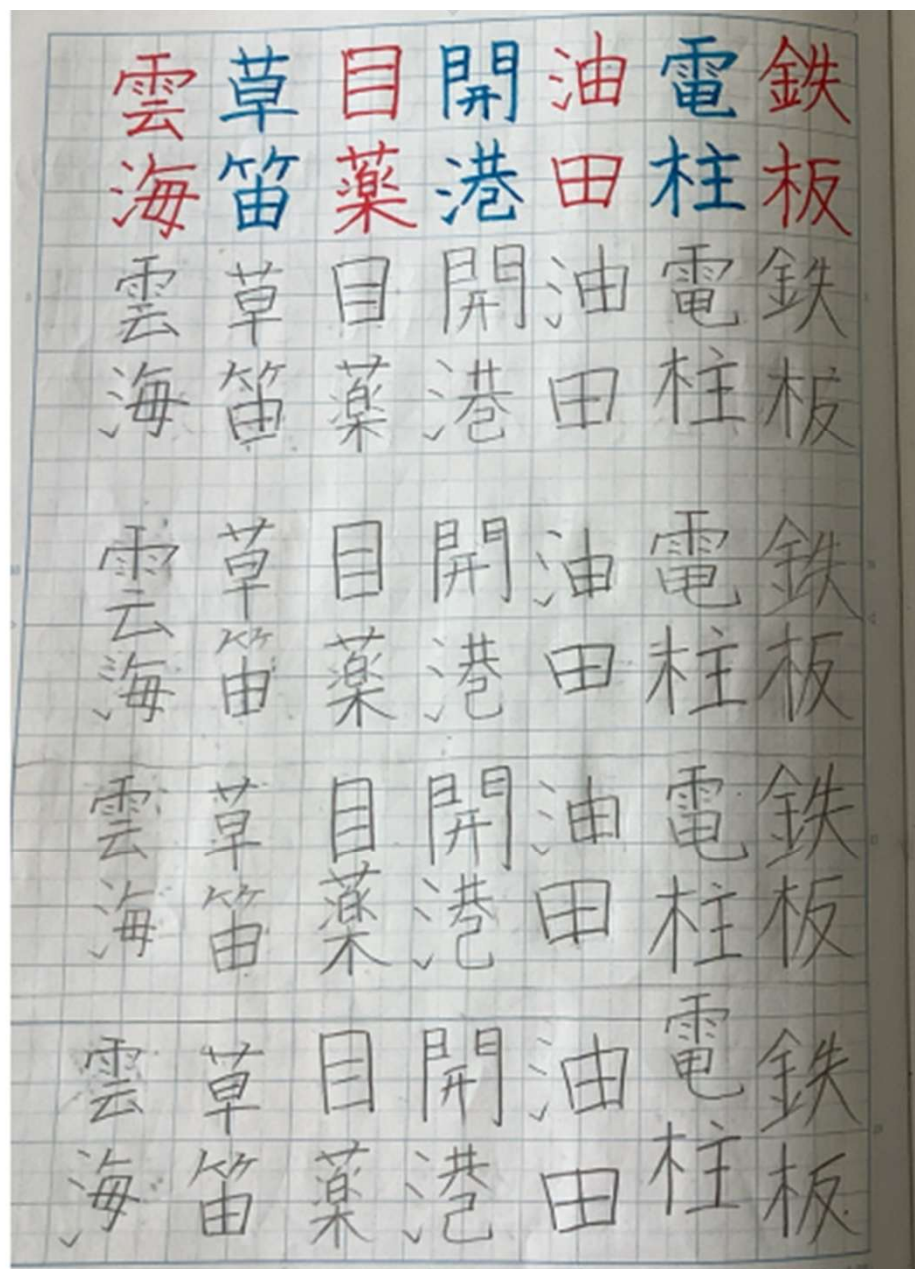 鉄板 鉄板 鉄板 鉄板 鉄板
電柱 電柱 電柱 電柱 電柱
油田 油田 油田 油田 油田
開港 開港 開港 開港 開港
目薬 目薬 目薬 目薬 目薬
草笛 草笛 草笛 草笛 草笛
雲海 雲海 雲海 雲海 雲海